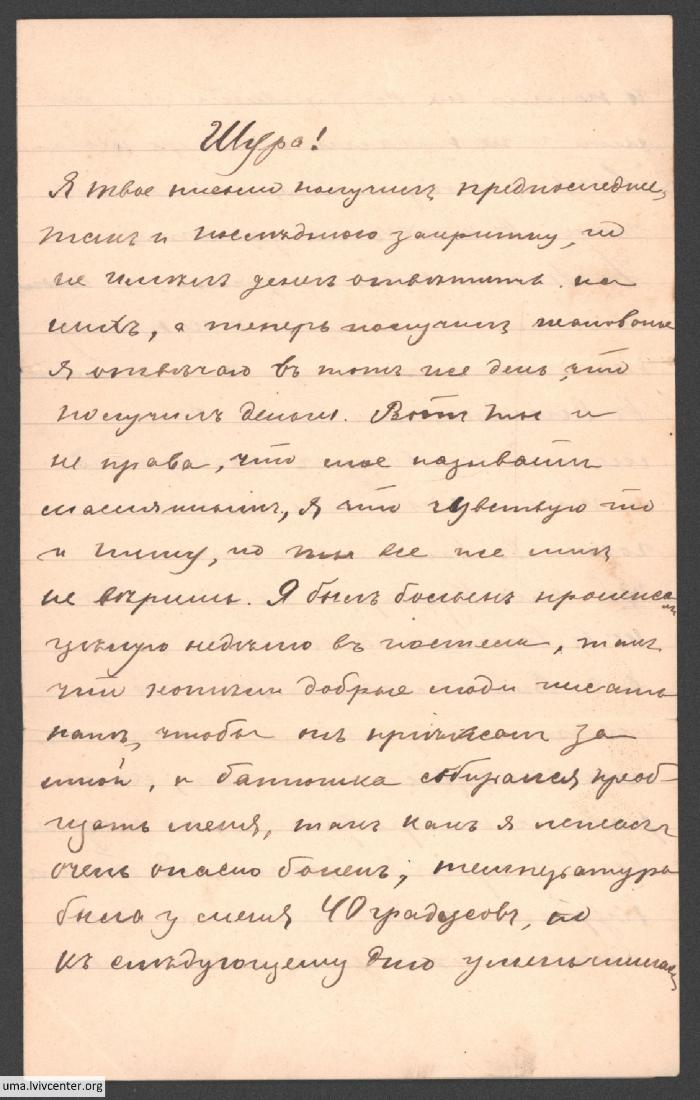 Шура!
Я твое письмо получилъ предпоследнее,
такъ и последнюю закрытку, но
не имелъ денег ответить на
нихъ, а теперь получилъ жалованье
я отвечаю въ тотъ же день, что
получилъ деньги. Вотъ ты и
не права, что мое называешь
я что чувствую то
и пишу, но ты все же мне
не веришь. Я былъ боленъ пролежалъ
целую неделю въ постели, такъ
что хотели добрые люди писать
чтобы онъ приехалъ за
мной, и батюшка собирался
меня, такъ какъ я лежалъ
очень опасно болен; температура
была у меня 40 градусовъ, но
къ следующему дню уменьшилась
uma.lvivcenter.org